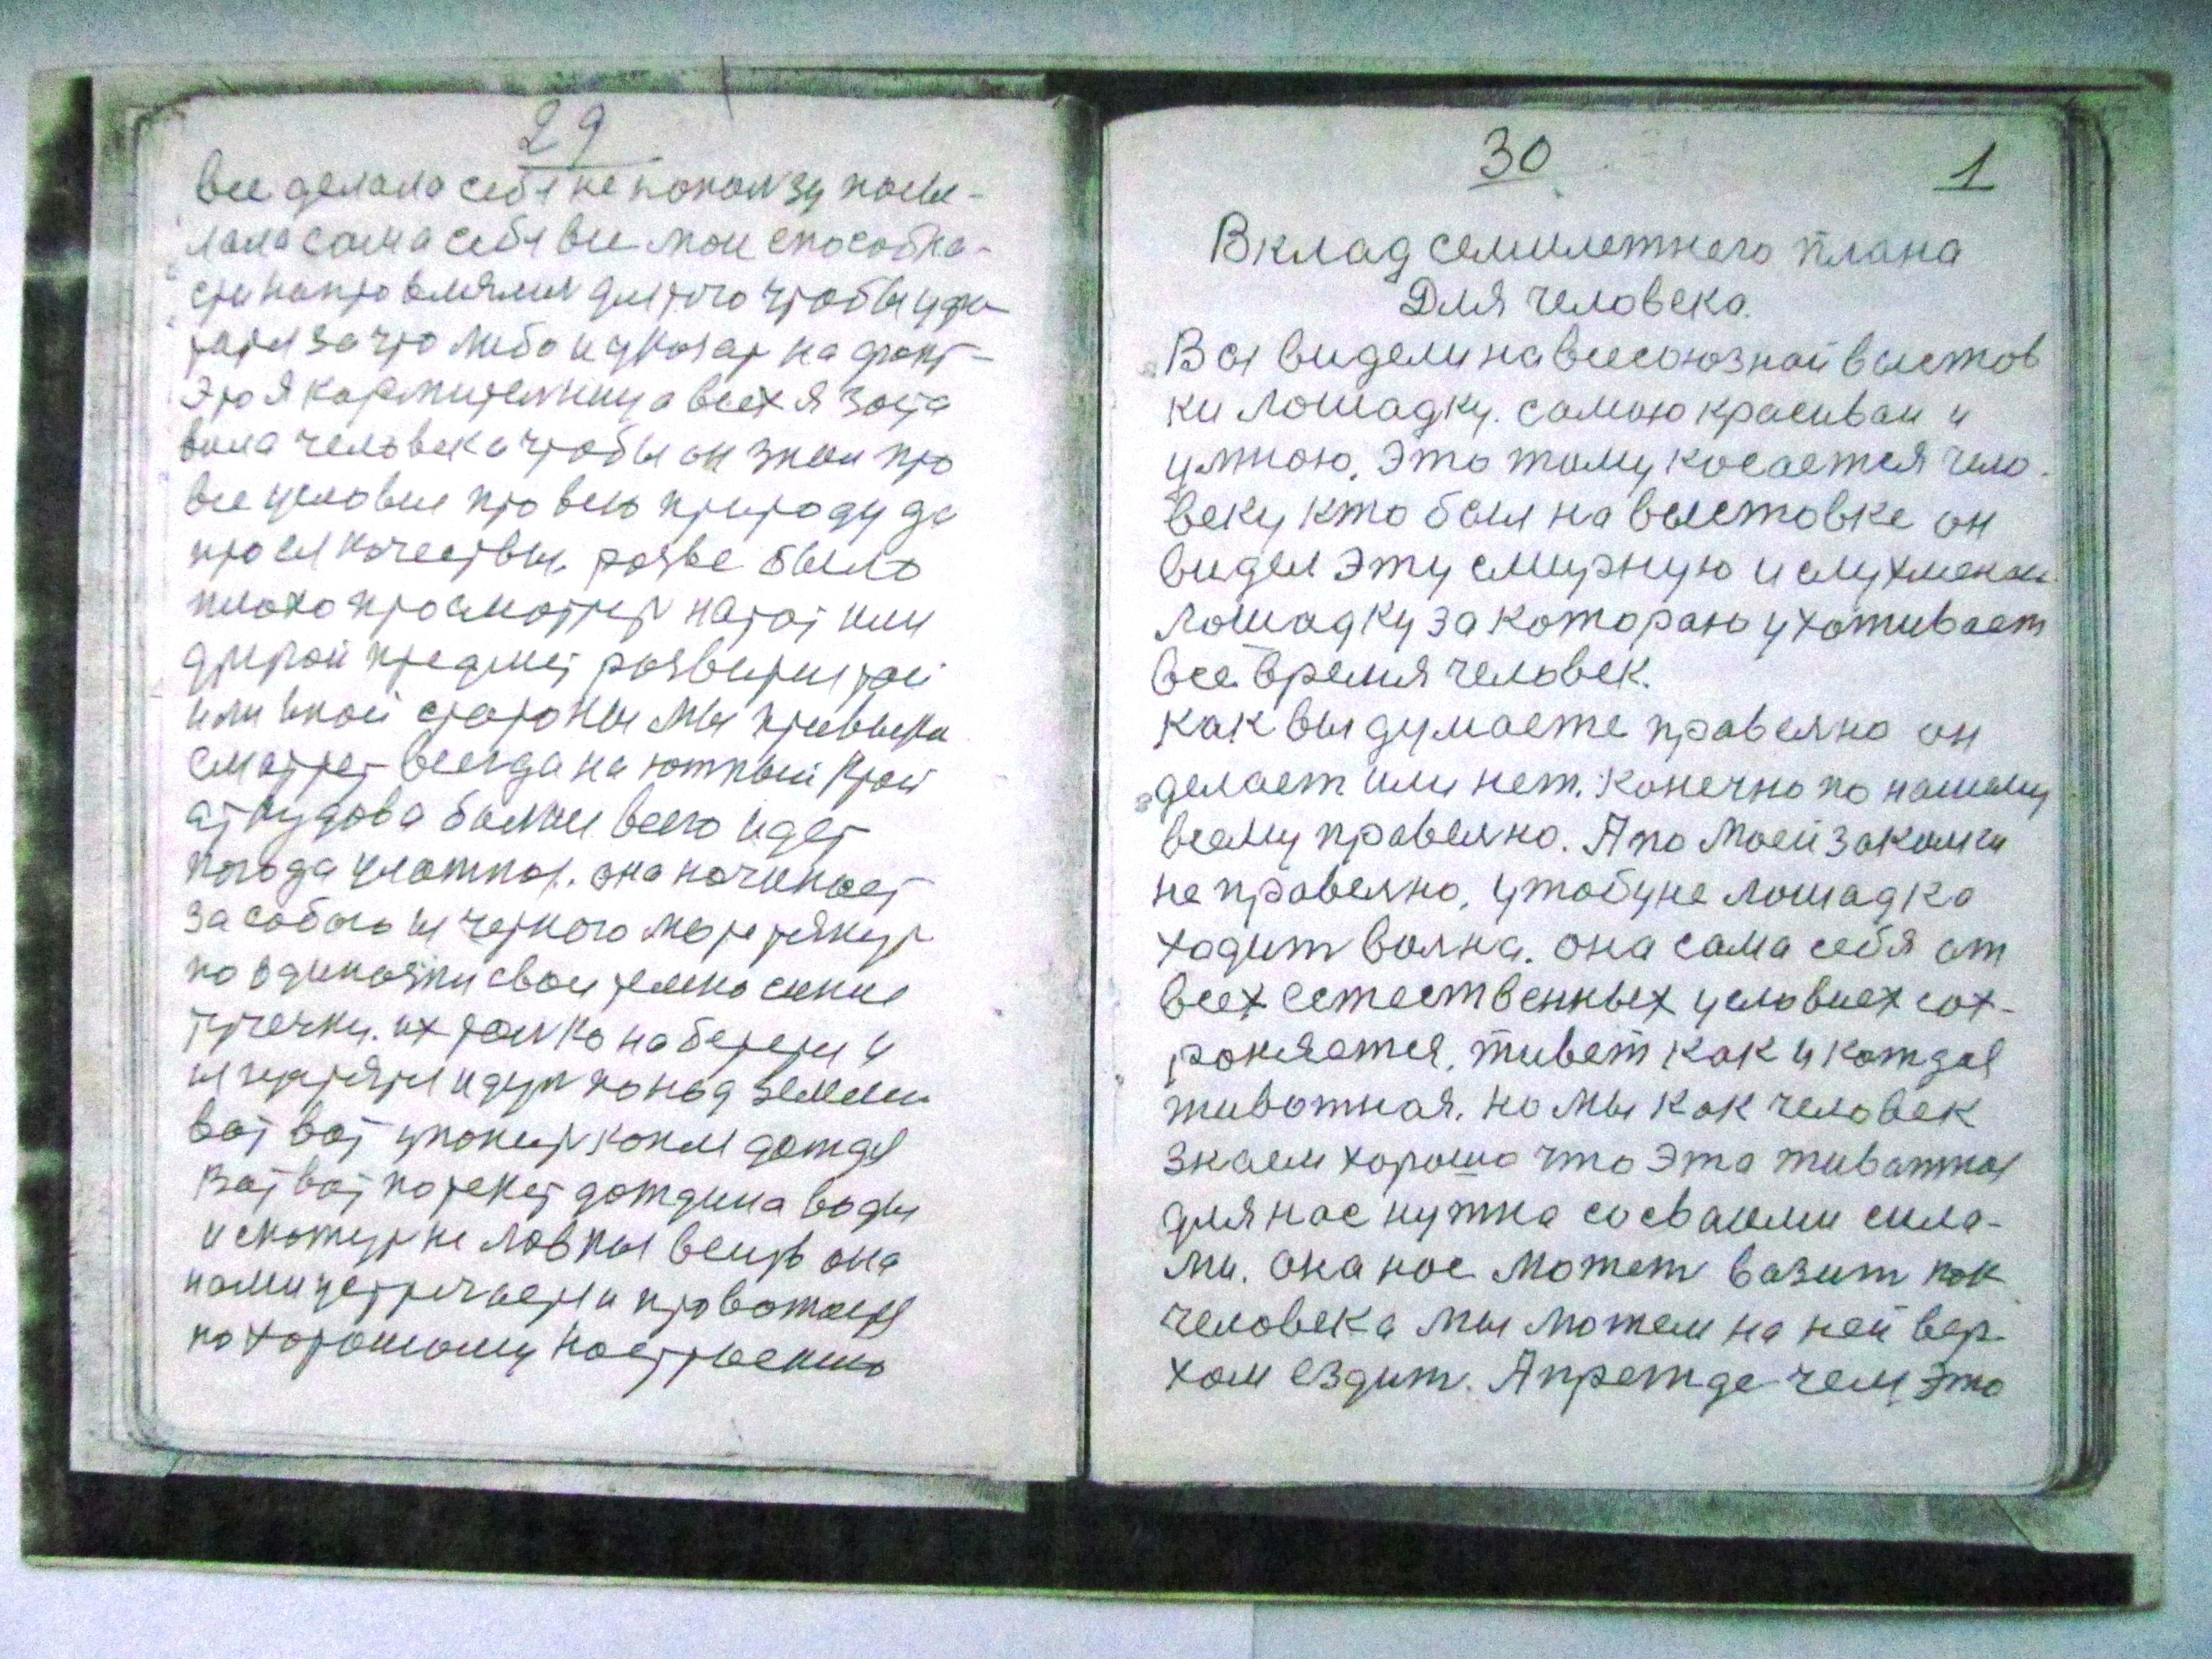 29
все делала себя не поползу посы-
лала сама себя все мои способна-
сти напровляли для того чтобы ухва
тится за что либо и указат на факт-
Это я кармителница всех я заста
вила человека чтобы он знал про
все условия про всю природу да
про ея качествы. разве было
плохо просмотрет на тот или
другой предмет развития той
или иной староны мы привыкли
сматрет всегда на ютный край
аткудова болши всего идет
погода уютная. она начинает
за собою из черного моря тянут
по одиначки свои темно синие
тучечки. их только на береги и
идут понад землей
вот вот упонут капли дождя
вот вот потекет дождина воды
и скажут не ловкая вещь она
нами устречается и провожается
по хорошому настроению
30
1
Вклад семилетнего плана
Для человека.
Вы видели на всесоюзной выстов
ки лошадку. самою красивая и
умною. Это тому косается чело-
веку кто был на выстовке он
видел эту смирную и слухменаю
лошадку за котораю ухаживает
все время человек.
Как вы думаете правелно он
делает или нет. Конечно по нашему
всему правелно. А по моей закалки
не правелно, у табуне лошадка
ходитволна. она сама себя от
всех естественных условиех сох-
роняется, живет как и каждое
животная. но мы как человек
знаем хорошо что эта живатная
для нас нужна со сваими сила-
ми. она нас может вазит как
человека мы можем на ней вер-
хом ездит. А прежде чем это